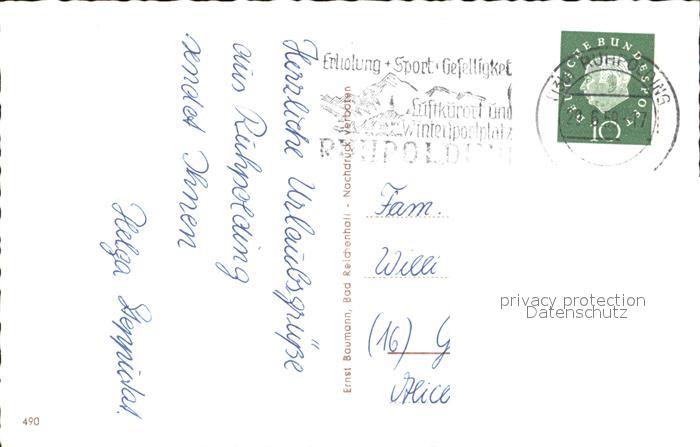 Herzliche Urlaubsgrüße
aus Ruhpolding
sendet Ihnen
Helga
Ernst Baumann, Bad Reichenhall - Nachdruck verboten
Erholung + Sport + Geselligkeit
Luftkurort und
Wintersportplatz
RUHPOLDING
DEUTSCHE BUNDESPOST
10
RUHPOLDING
Fam.
Willi
(16) G
Alice
privacy protection
Datenschutz
490